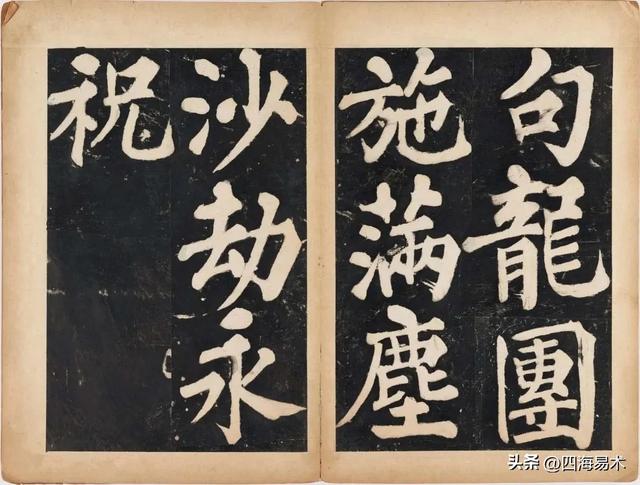 句龍團
施滿塵
沙劫永
祝
头条 @四海易木